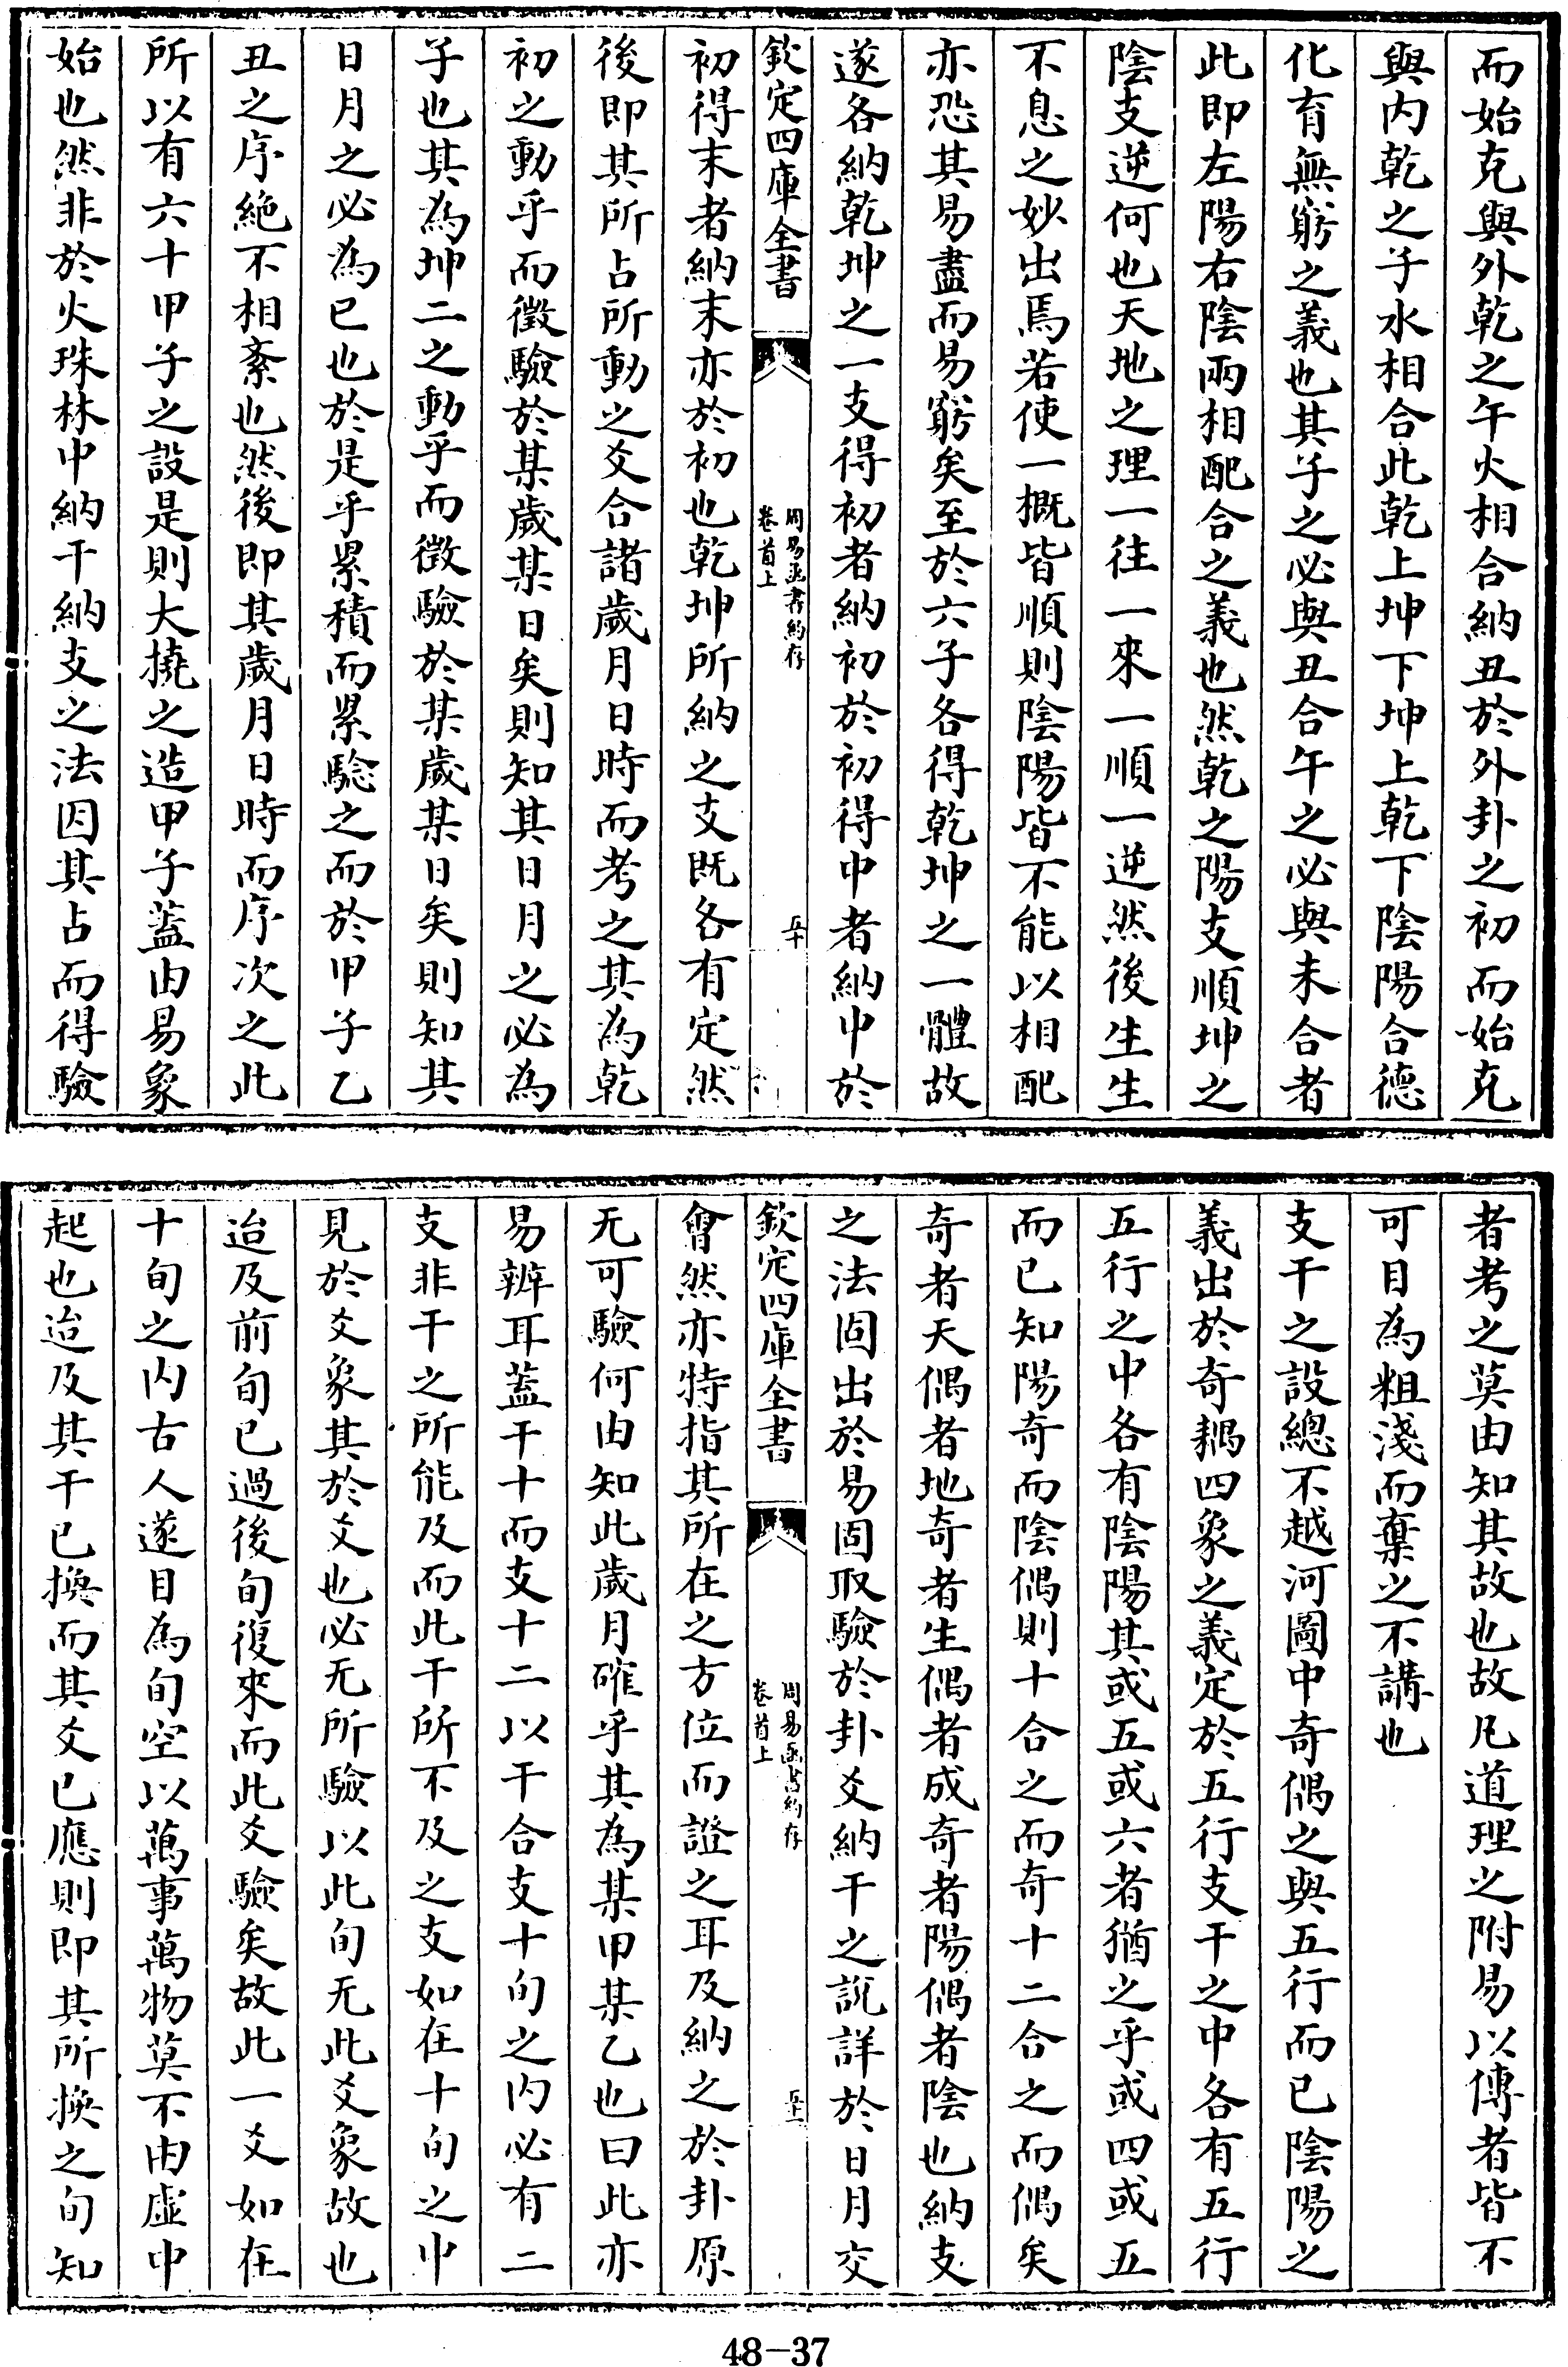 而始克與外乾之午火相合納丑於外卦之初而始克
與内乾之子水相合此乾上坤下坤上乾下陰陽合德
化育無窮之義也其子之必與丑合午之必與未合者
此即左陽右陰兩相配合之義也然乾之陽支順坤之
陰支逆何也天地之理一往一來一順一逆然後生生
不息之妙出焉若使一概皆順則陰陽皆不能以相配
亦恐其易盡而易窮矣至於六子各得乾坤之一體故
遂各納乾坤之一支得初者納初於初得中者納中於
欽定四庫全書
周易函書約存
卷首上
五十
初得末者納末亦於初也乾坤所納之支既各有定然
後即其所占所動之爻合諸歲月日時而考之其為乾
初之動乎而徵驗於某歲某日矣則知其日月之必為
子也其為坤二之動乎而徵驗於某歲某日矣則知其
日月之必為巳也於是乎累積而累驗之而於甲子乙
丑之序絶不相紊也然後即其歲月日時而序次之此
所以有六十甲子之設是則大撓之造甲子蓋由易象
始也然非於火珠林中納干納支之法因其占而得驗
者考之莫由知其故也故凡道理之附易以傳者皆不
可目為粗淺而棄之不講也
支干之設總不越河圖中奇偶之與五行而已陰陽之
義出於奇耦四象之義定於五行支干之中各有五行
五行之中各有陰陽其或五或六者猶之乎或四或五
而已知陽奇而陰偶則十合之而奇十二合之而偶矣
奇者天偶者地奇者生偶者成奇者陽偶者陰也納支
之法固出於易固取驗於卦爻納干之説詳於日月交
欽定四庫全書
周易函書約存
卷首上
五十一
會然亦特指其所在之方位而證之耳及納之於卦原
无可驗何由知此歲月確乎其為某甲某乙也曰此亦
易辨耳蓋干十而支十二以干合支十旬之内必有二
支非干之所能及而此干所不及之支如在十旬之中
見於爻象其於爻也必无所驗以此旬无此爻象故也
迨及前旬已過後旬復來而此爻驗矣故此一爻如在
十旬之内古人遂目為旬空以萬事萬物莫不由虛中
起也迨及其干已換而其爻已應則即其所換之旬知
48-37